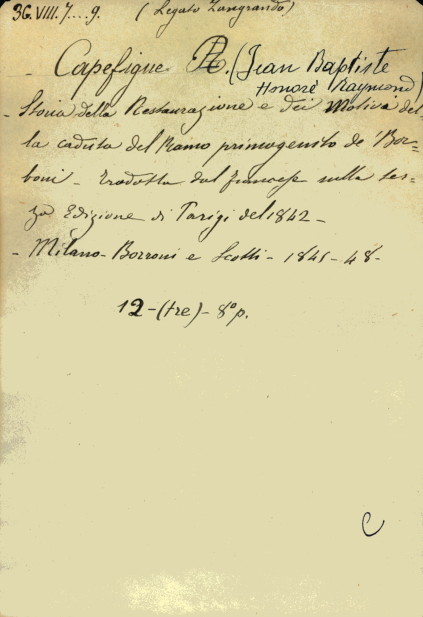 36.VIII.7...9. (Legato Zangrando)
- Capefigue R. (Jean Baptiste
Honoré Raymond)
- Storia della Restaurazione e dei Motivi del=
la caduta del Ramo primogenito de' Bor=
boni - Tradotta dal francese sulla ter=
za Edizione di Parigi del 1842 -
- Milano - Borroni e Scotti - 1845 - 48 -
12 - (tre) - 8° p.
C